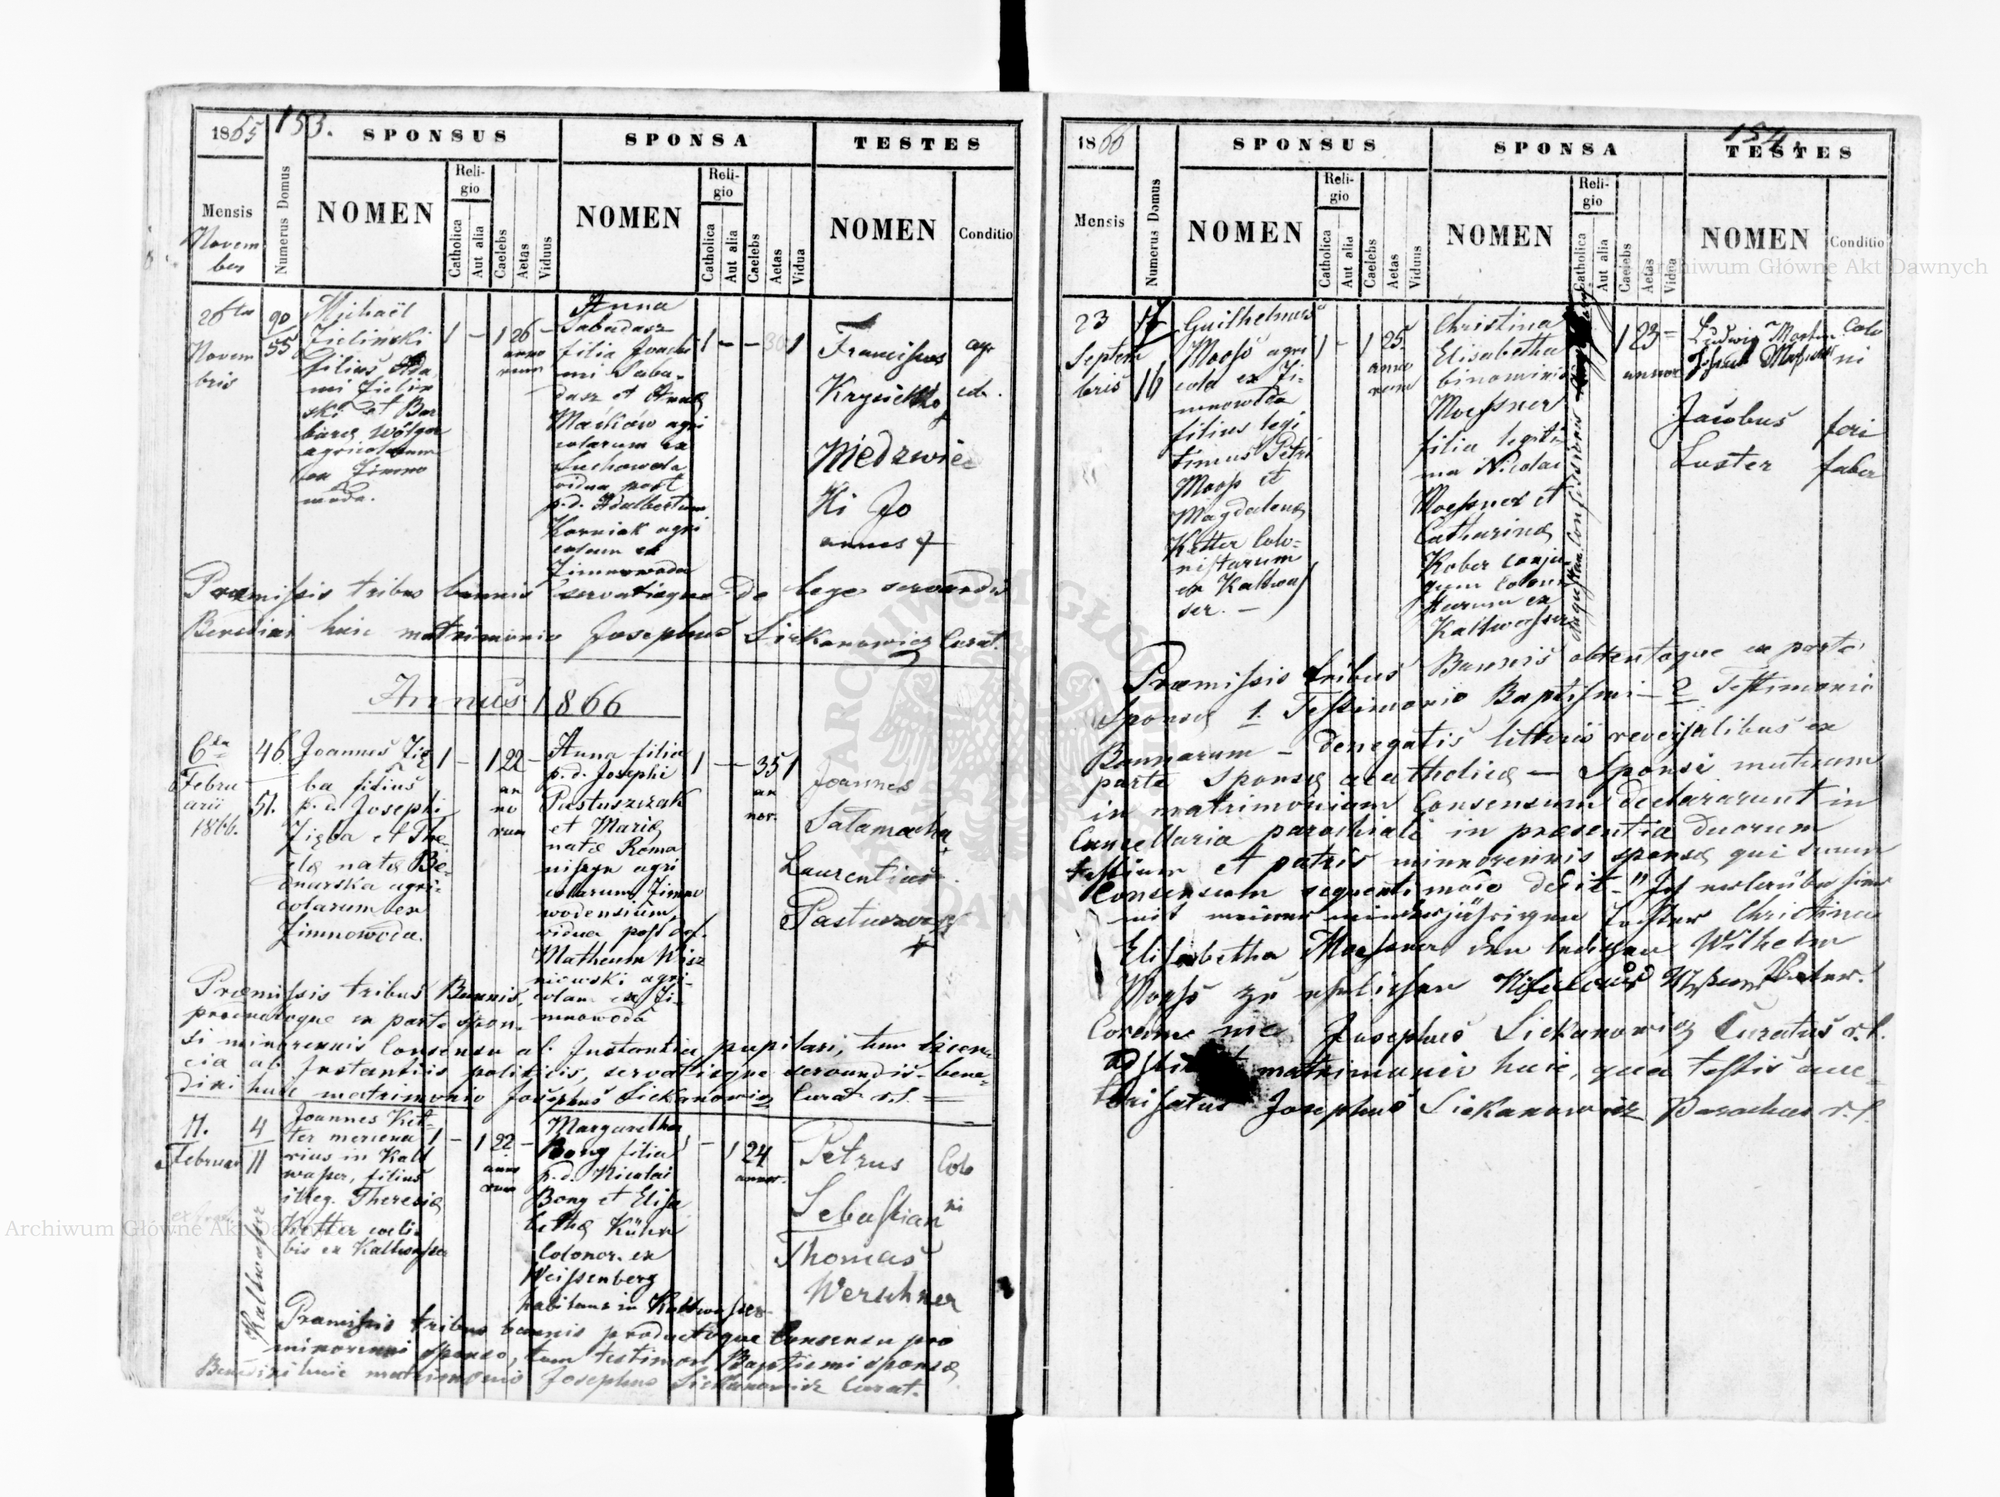 1865 153.
SPONSUS SPONSA TESTES
Mensis
Novem
ber
Numerus Domus
NOMEN
Religio
Catholica
Aut alia
Caelebs
Aetas
Viduus
NOMEN
Religio
Catholica
Aut alia
Caelebs
Aetas
Vidua
NOMEN
Conditio
Novem
bris
90
55
Michaël
Zieliński
filius Ada
mi Zieliń
ski et Bar
baræ
agricolarum
ex Zimno
woda.
1 – 1 26 –
anno
rum
Anna
Sabadasz
filia Joachi
mi Saba-
dasz et Annæ
agri
colarum ex
Suchowola
vidua post
p.d. Adalbertum
Korniak agri
colam ex
Zimnowoda
1 – – 30 1
Franciscus
Niedzwie
cki Jo
annes +
agr
col.
Præmissis tribus bannis servatisque de lege servandis
Benedixi huic matrimonio Josephus Siekanowicz Curat.
Annus 1866
6ta
Febru
arii
1866.
46
51.
Joannes Zię
ba filius
p.d. Josephi
Zięba et The
clæ natæ Be-
dnarska agri-
colarum ex
Zimnowoda.
1 – 1 22 –
an
no
rum
Anna filia
p.d. Josephi
Pastuszczak
et Mariæ
natæ Roma
niszyn agri
colarum Zimno
wodensium,
vidua post def.
Matheum Wisz
niewski agri-
colam ex Zi-
mnowoda
1 – – 35 1
an
nor.
Joannes
Salamacha
+
Laurentius
Pastuszczak
+
Præmissis tribus Bannis,
productoque ex parte spon-
si minorennis Consensu ab Instantia pupilari, tum licen
cia ab Instantiis politicis, servatisque servandis bene-
dixi huic matrimonio Josephus Siekanowicz Curat r.l.
11.
Februar
4
11
Kaltwasser
Joannes Ket-
ter mercena
rius in Kalt
wasser, filius
illeg. Theresiæ
Ketter cæli-
bis ex Kaltwasser
1 – 1 22 –
anno
rum
Margaretha
Bong filia
p.d. Nicolai
Bong et Elisa
bethæ Kühn
Colonor. ex
Weissenberg
habitans in Kaltwasser
1 – 1 24
annor.
Petrus
Sebastian
Thomas
Werschner
Colo
ni
Præmissis tribus bannis productoque Consensu pro
minorenni sponso, tum testimon. Baptismi sponsæ
Benedixi huic matrimonio Josephus Siekanowicz Curat.
1866 154.
SPONSUS SPONSA TESTES
Mensis
Numerus Domus
NOMEN
Religio
Catholica
Aut alia
Caelebs
Aetas
Viduus
NOMEN
Religio
Catholica
Aut alia
Caelebs
Aetas
Vidua
NOMEN
Conditio
23
Septem
bris
16
Guilhelmus
Mooss agri
cola ex Zi-
mnowoda
filius legi
timus Petri
Mooss et
Magdalenæ
Ketter Colo-
nistarum
ex Kaltwas
ser. –
1 – 1 25
anno
rum
Christina
Elisabetha
binominis
Moessner
filia legiti
ma Nicolai
Moessner et
Catharinæ
Kober conju-
gum Coloni
starum ex
Kaltwasser
1 23 –
annor
Ludwig
Jacobus
Luster
Colo
ni
fori
faber
Præmissis tribus Bannis obtentoque ex parte
Sponsæ 1. Testimonio Baptismi – 2 Testimonio
Bannorum – denegatis litteris reversalibus ex
parte Sponsæ acatholicæ – Sponsi mutuum
in matrimonium Consensum declararunt in
Cancellaria parochiali in præsentia duorum
testium et patris minorennis sponsæ qui suum
Consensum sequenti modo dedit – "Ich erlaube hier
mit meiner minderjährigen Tochter Christina
Elisabetha Moessner den ledigen Wilhelm
Mooss zu ehelichen Nikolaus Vater.
Coram me Josephus Siekanowicz Curatus r.l.
matrimonio huic, qua testis auc-
torisatus Josephus Siekanowicz Parochus r.l.
Archiwum Główne Akt Dawnych
Archiwum Główne Akt Dawnych
ARCHIWUM GŁÓWNE AKT DAWNYCH